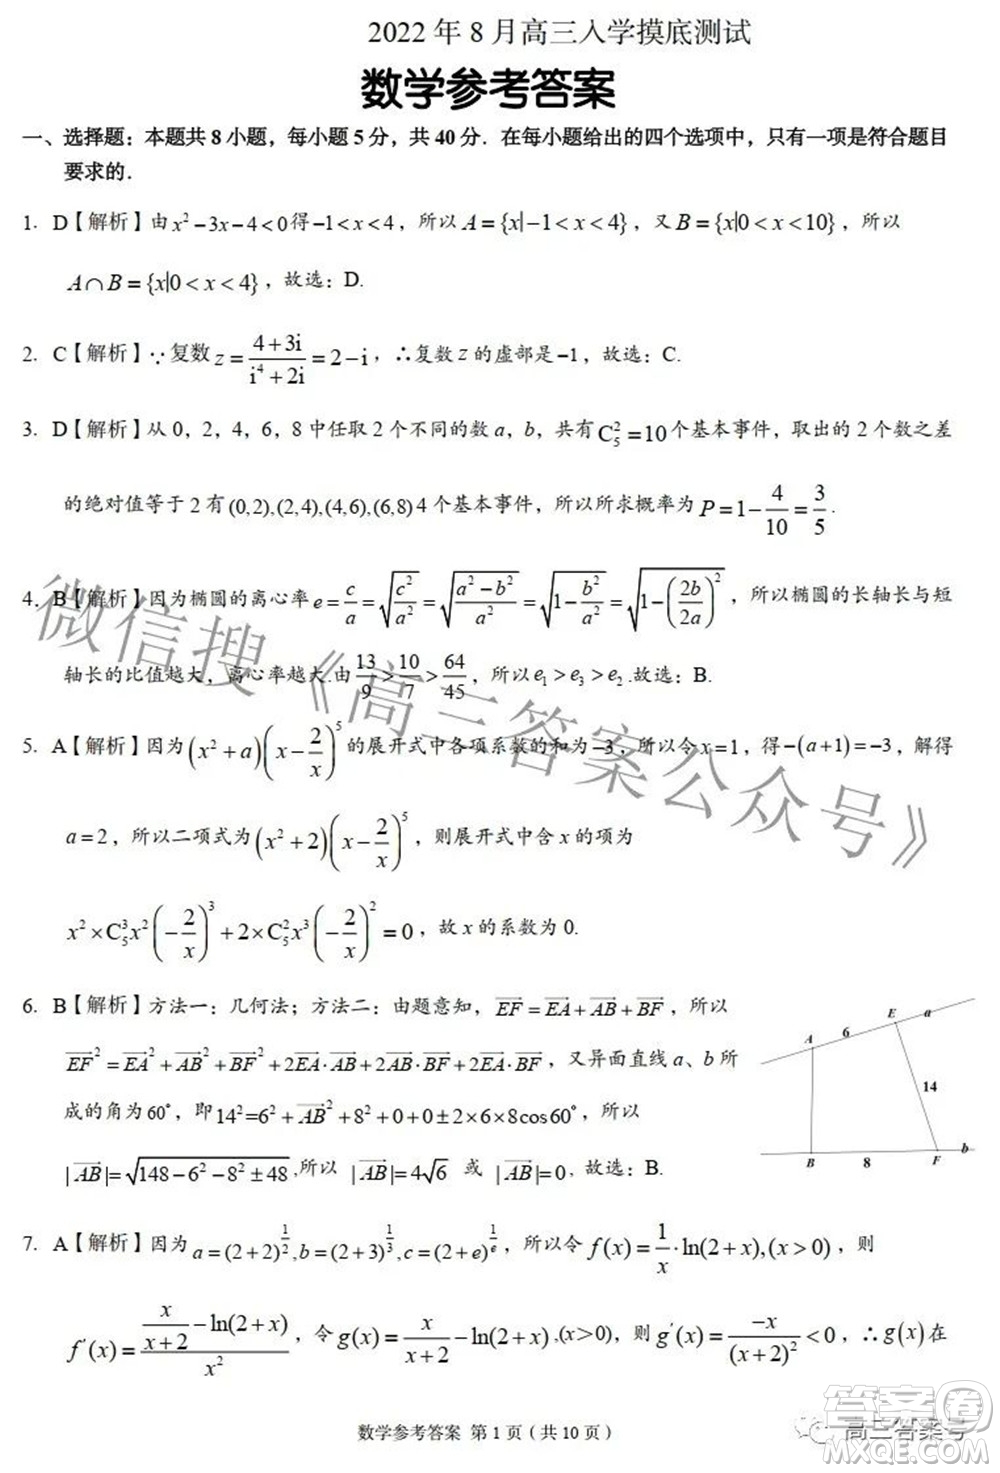 2022 年 8 月高三入学摸底测试
数学参考答案
一、选择题：本题共 8 小题，每小题 5 分，共 40 分．在每小题给出的四个选项中，只有一项是符合题目
要求的．
1. D【解析】由 x²−3x−4<0 得 −1<x<4，所以 A={x|−1<x<4}，又 B={x|0<x<10}，所以
A∩B={x|0<x<4}，故选：D.
2. C【解析】∵复数 z=(4+3i)/(i⁴+2i)=2−i，∴复数 z 的虚部是 −1，故选：C.
3. D【解析】从 0，2，4，6，8 中任取 2 个不同的数 a，b，共有 C₅²=10 个基本事件，取出的 2 个数之差
的绝对值等于 2 有 (0,2),(2,4),(4,6),(6,8) 4 个基本事件，所以所求概率为 P=1−4/10=3/5.
4. B【解析】因为椭圆的离心率 e=c/a=√(c²/a²)=√((a²−b²)/a²)=√(1−b²/a²)=√(1−(2b/2a)²)，所以椭圆的长轴长与短
轴长的比值越大，离心率越大.由 13/9>10/7>64/45，所以 e₁>e₃>e₂.故选：B.
5. A【解析】因为 (x²+a)(x−2/x)⁵ 的展开式中各项系数的和为 −3，所以令 x=1，得 −(a+1)=−3，解得
a=2，所以二项式为 (x²+2)(x−2/x)⁵，则展开式中含 x 的项为
x²×C₅³x²(−2/x)³+2×C₅²x³(−2/x)²=0，故 x 的系数为 0.
6. B【解析】方法一：几何法；方法二：由题意知，EF=EA+AB+BF，所以
EF²=EA²+AB²+BF²+2EA·AB+2AB·BF+2EA·BF，又异面直线 a、b 所
成的角为 60°，即 14²=6²+AB²+8²+0+0±2×6×8cos60°，所以
|AB|=√(148−6²−8²±48),所以 |AB|=4√6 或 |AB|=10，故选：B.
A
6
E
a
14
B
8
F
b
7. A【解析】因为 a=(2+2)^(1/2),b=(2+3)^(1/3),c=(2+e)^(1/e)，所以令 f(x)=1/x·ln(2+x),(x>0)，则
f′(x)=(x/(x+2)−ln(2+x))/x²，令 g(x)=x/(x+2)−ln(2+x),(x>0)，则 g′(x)=−x/(x+2)²<0，∴g(x) 在
微信搜《高三答案公众号》
数学参考答案 第 1 页（共 10 页）
高三答案号
答案圈
MXQE.COM